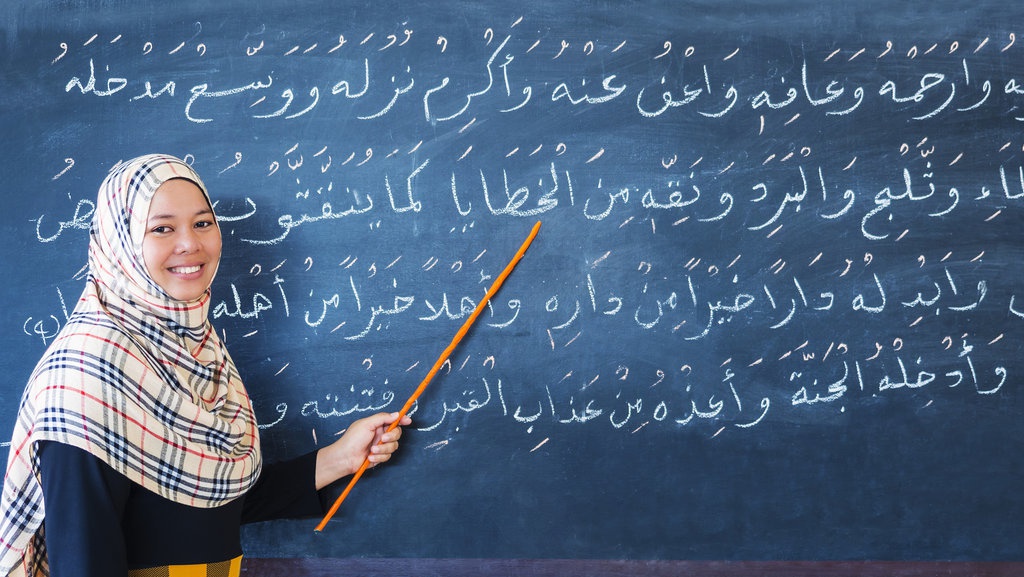 وَارْحَمْهُ وَعَافِهِ وَاعْفُ عَنْهُ وَأَكْرِمْ نُزُلَهُ وَوَسِّعْ مَدْخَلَهُ
وَثَّلْجِ وَالْبَرَدِ وَنَقِّهِ مِنَ الْخَطَايَا كَمَا
وَابْدِلْهُ دَارًا خَيْرًا مِنْ دَارِهِ وَأَهْلًا خَيْرًا مِنْ أَهْلِهِ
وَأَدْخِلْهُ الْجَنَّةَ وَأَعِذْهُ مِنْ عَذَابِ الْقَبْرِ وَفِتْنَتِهِ وَ